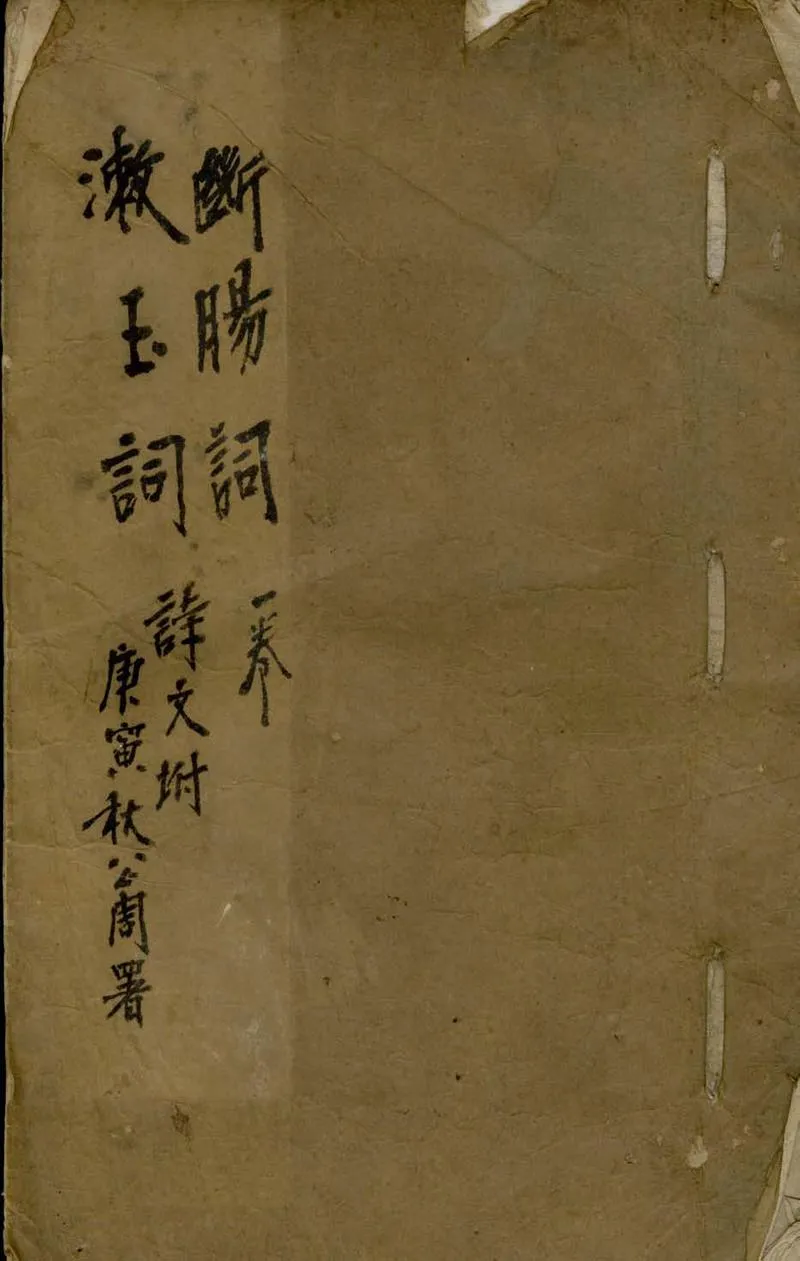 斷腸詞一卷
漱玉詞詩文坿
庚寅秋公周署